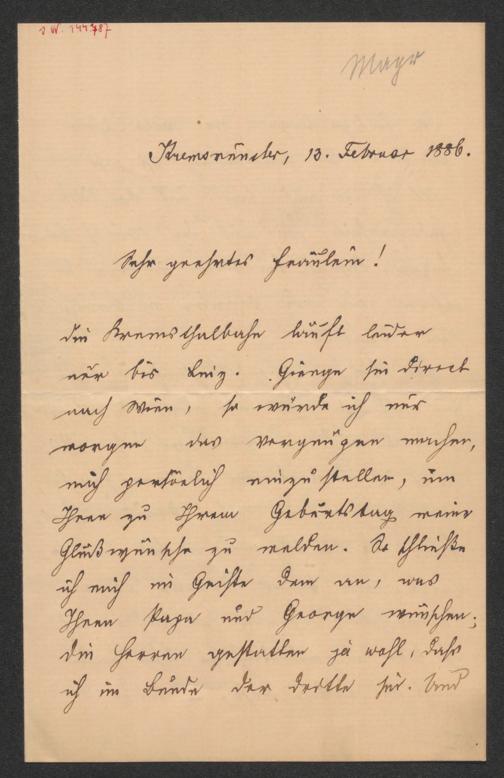 Mayr
Kremsmünster, 13. Februar 1886.
Sehr geehrtes Fräulein!
Die Kremsthalbahn läuft leider
nur bis Linz. Gienge sie direct
nach Wien, so würde ich mir
morgen das Vergnügen machen,
mich persönlich einzustellen, um
Ihnen zu Ihrem Geburtstag meine
Glückwünsche zu melden. So schließe
ich mich im Geiste dem an, was
Ihnen Papa und George wünschen;
die Herren gestatten ja wohl, dass
ich im Bunde der Dritte sei. Und